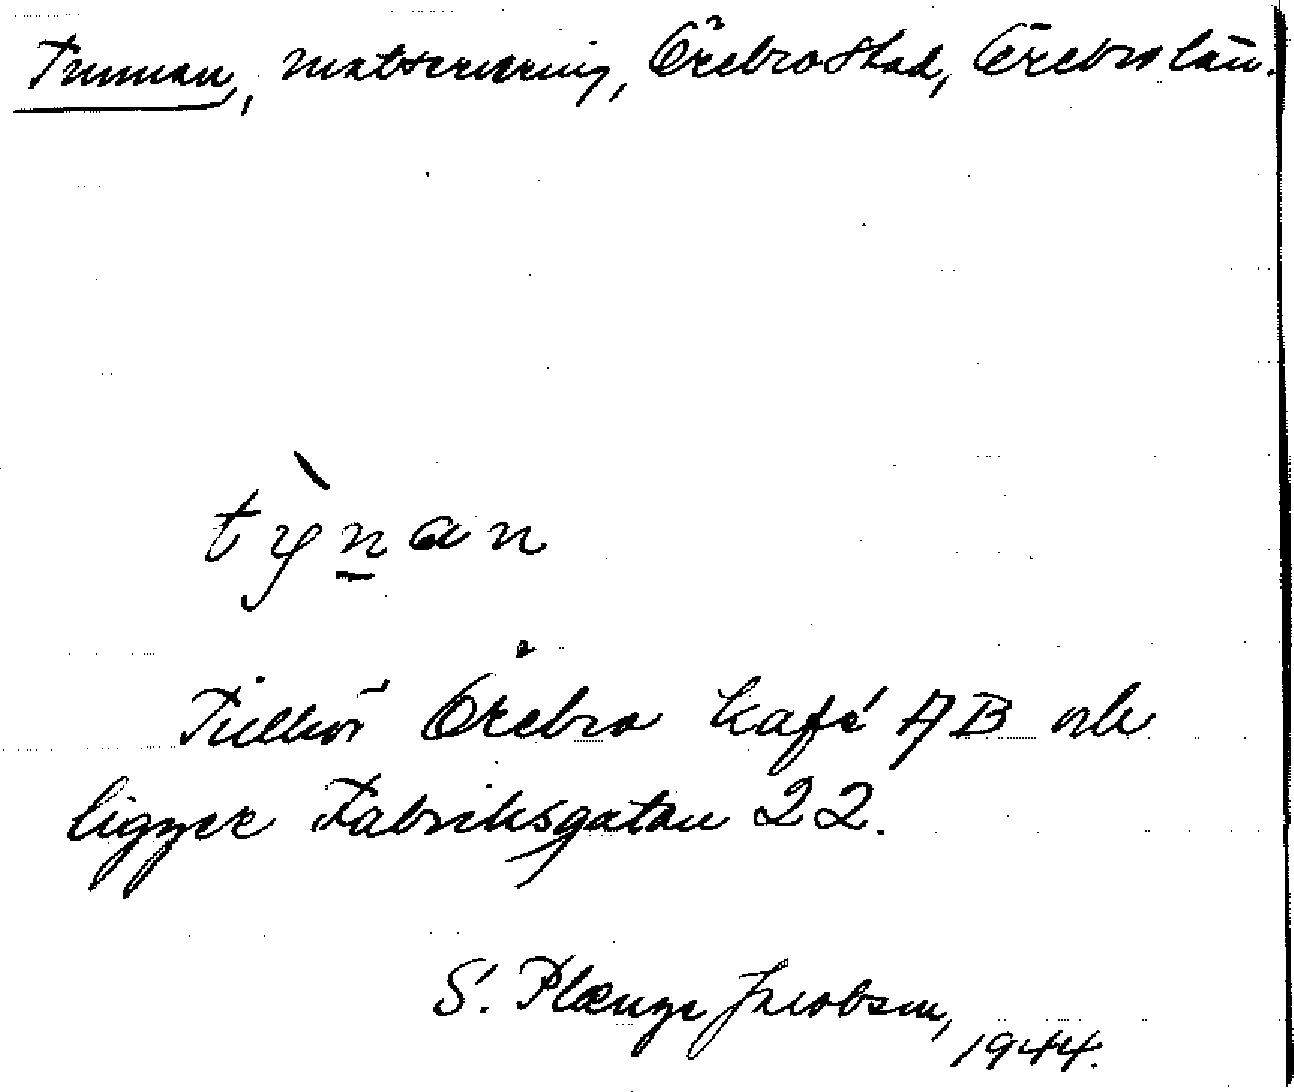 Tunnan, matservering, Örebro stad, Örebro län.
tỳnan
Tillhör Örebro Kafé AB och
ligger Fabriksgatan 22.
S. Plænge Jacobsen,
1944.